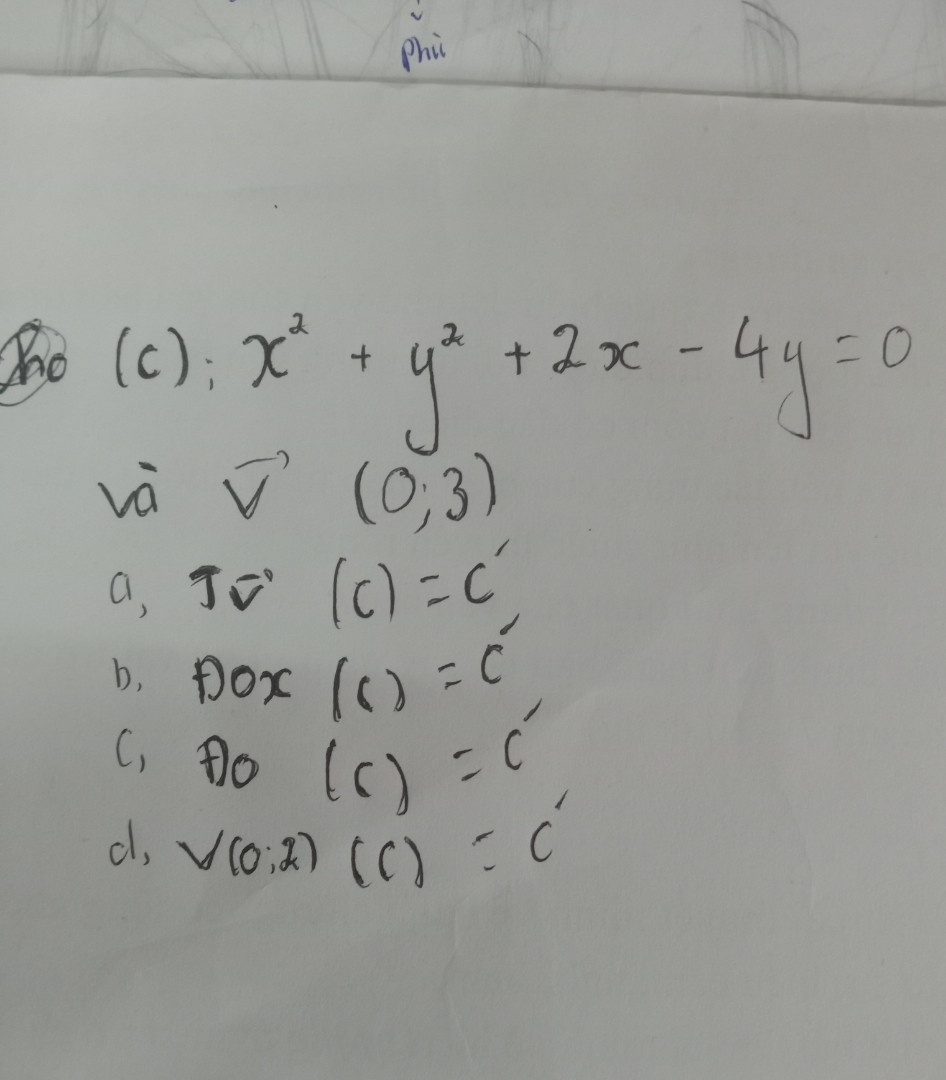 Phù
Cho (C): x² + y² + 2x - 4y = 0
và v⃗ (0;3)
a, Tv⃗ (C) = C'
b, Đox (C) = C'
c, Đo (C) = C'
d, V(0;2) (C) = C'